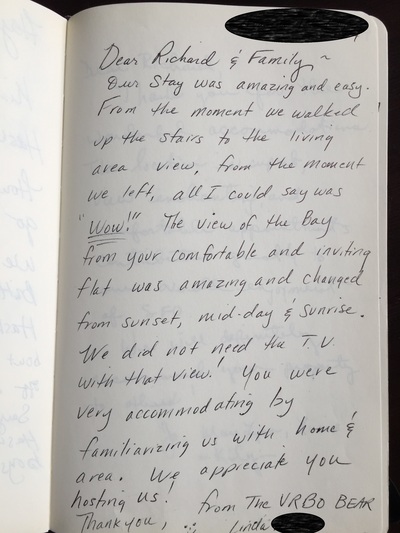 Dear Richard & Family ~
Our Stay was amazing and easy.
From the moment we walked
up the stairs to the living
area view, from the moment
we left, all I could say was
"Wow!" The view of the Bay
from your comfortable and inviting
flat was amazing and changed
from sunset, mid-day & sunrise.
We did not need the T.V.
with that view! You were
very accommodating by
familiarizing us with home &
area. We appreciate you
hosting us! from The VRBO BEAR
Thank you, Linda